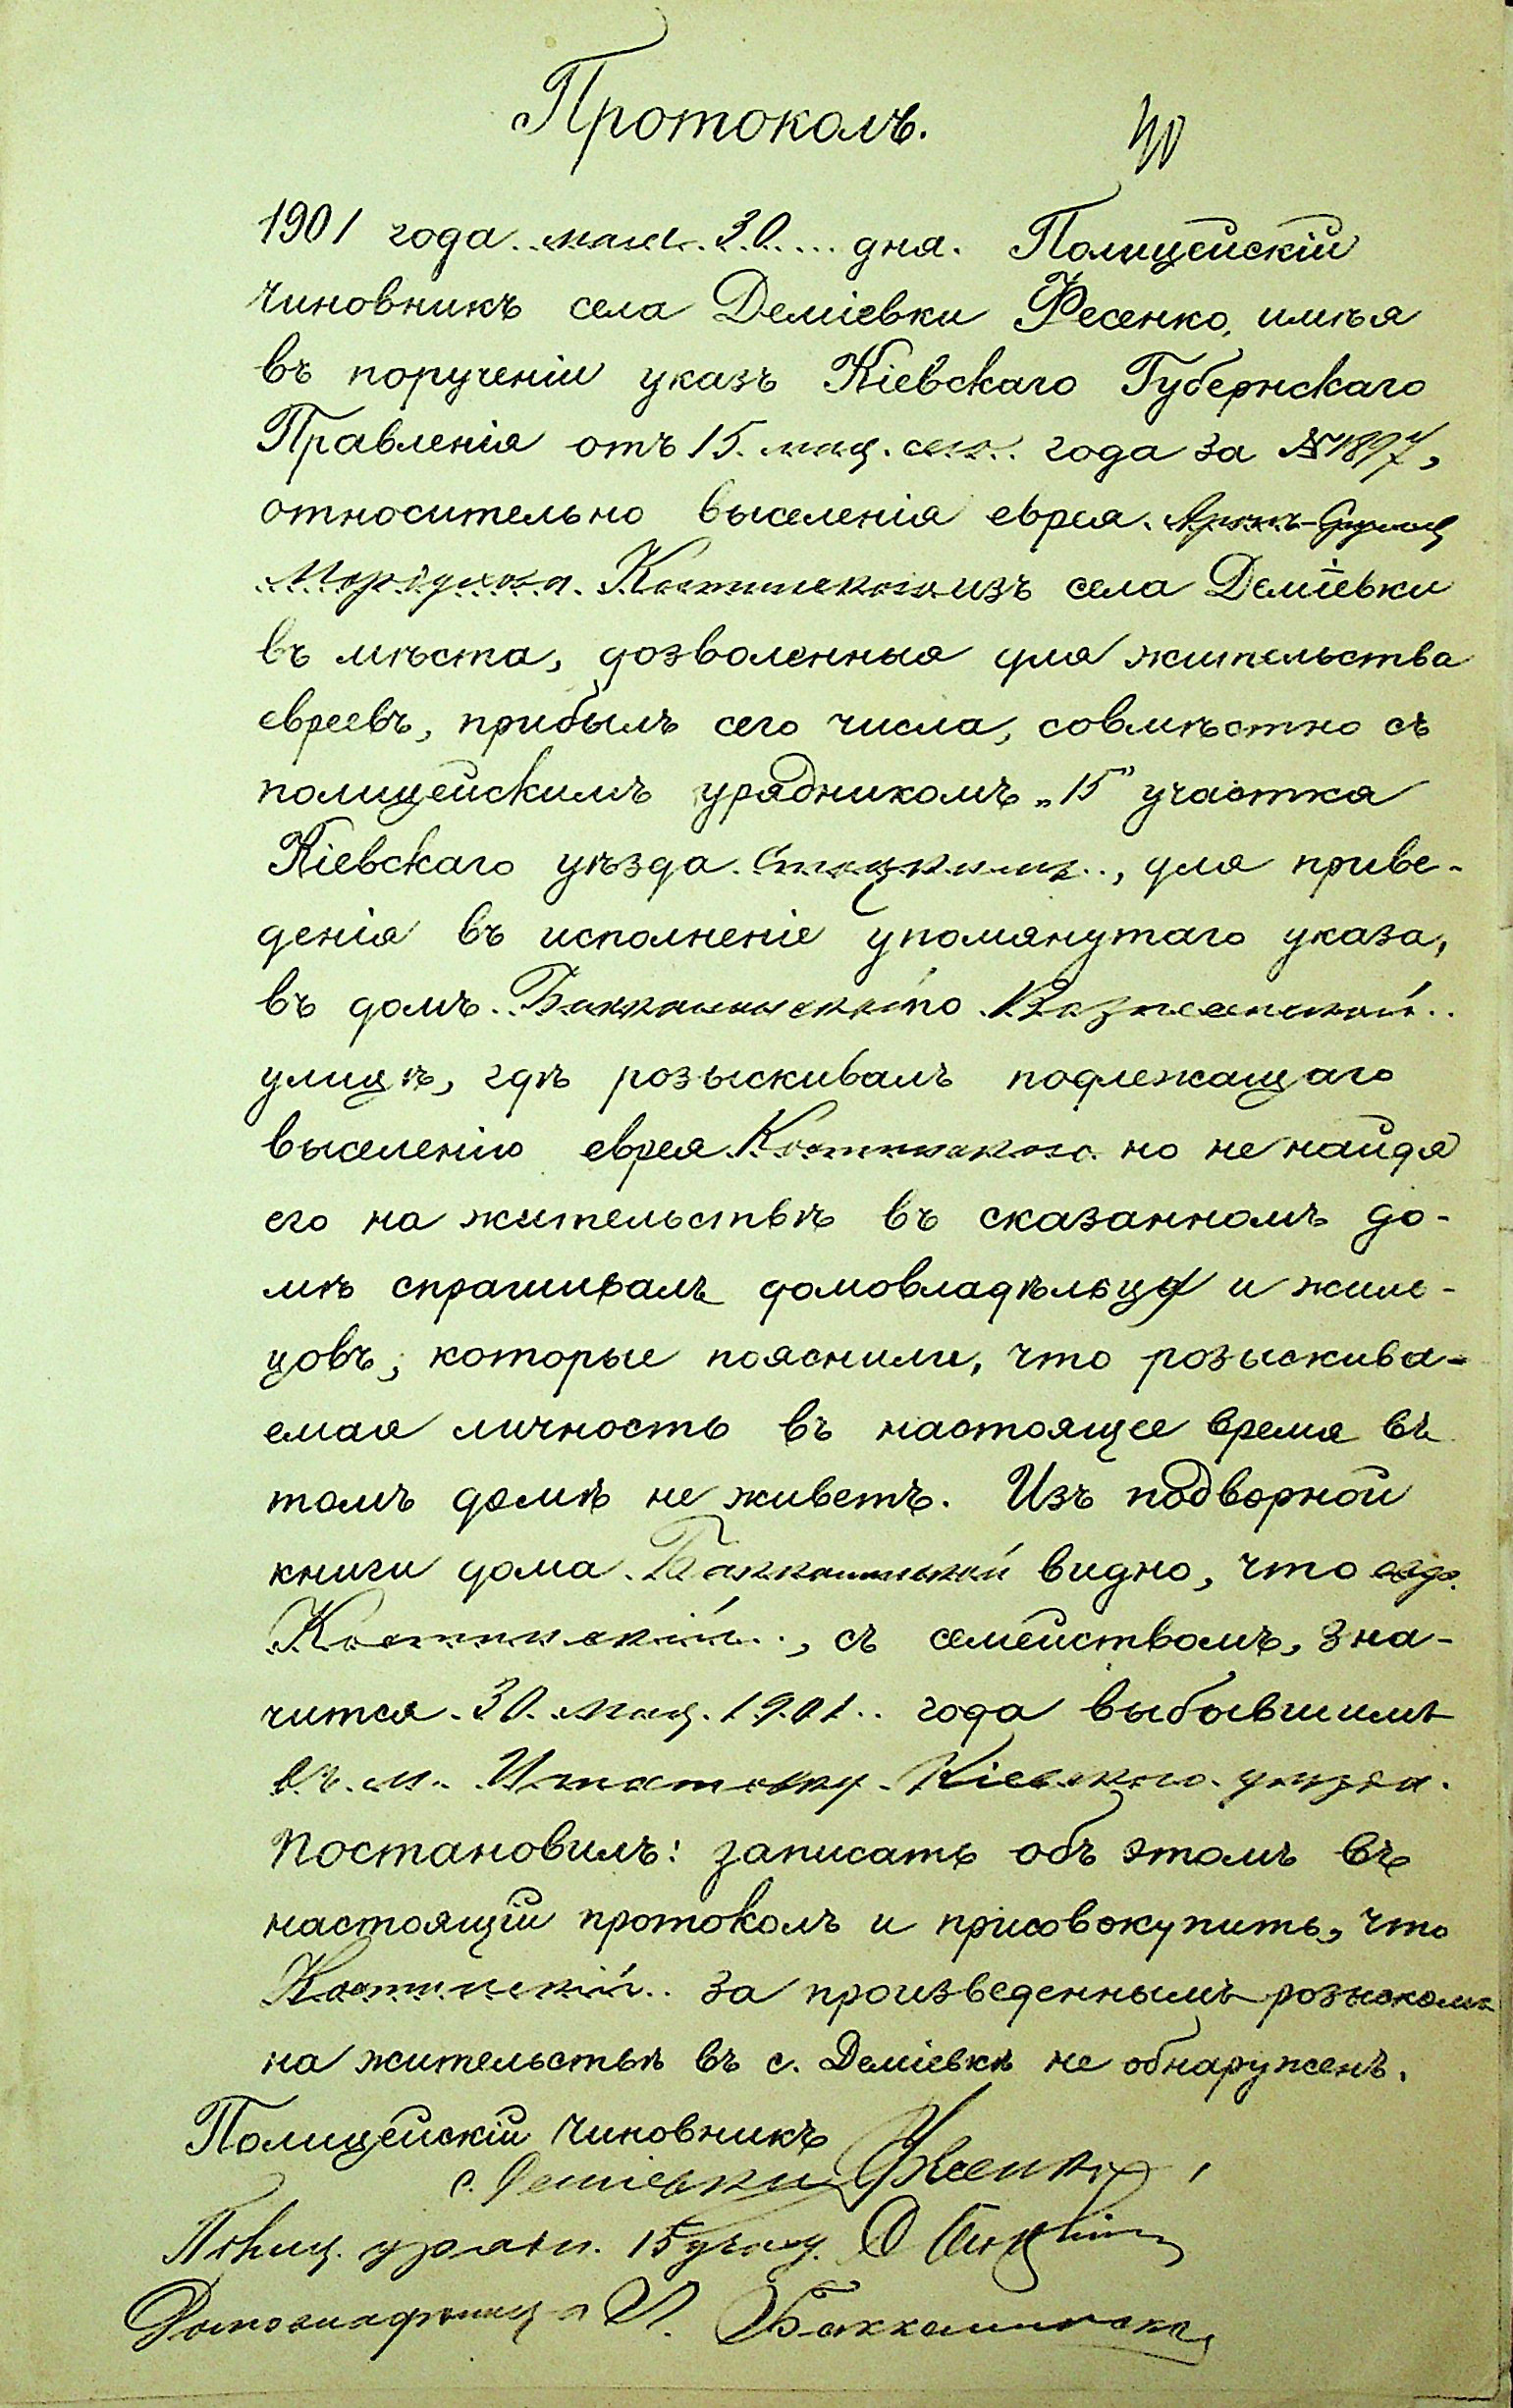 Протоколъ.
40
1901 года мая 30 дня. Полицейскій
чиновникъ села Деміевки Фесенко, имѣя
въ порученіи указъ Кіевскаго Губернскаго
Правленія отъ 15 мая сего года за №1897,
относительно выселенія еврея
Мордухова Костинскаго изъ села Деміевки
въ мѣста, дозволенныя для жительства
евреевъ, прибылъ сего числа, совмѣстно съ
полицейскимъ урядникомъ „15" участка
Кіевскаго уѣзда Стоцкимъ, для приве-
денія въ исполненіе упомянутаго указа,
въ домъ Баккалинской по Вознесенской
улицѣ, гдѣ розыскивалъ подлежащаго
выселенію еврея Костинскаго но не найдя
его на жительствѣ въ сказанномъ до-
мѣ спрашивалъ домовладѣльца и жиль-
цовъ, которые пояснили, что розыскива-
емая личность въ настоящее время въ
томъ домѣ не живетъ. Изъ подворной
книги дома Баккалинской видно, что
Костинскій, съ семействомъ, зна-
чится 30 мая 1901 года выбывшимъ
въ м. Игнатовку Кіевскаго уѣзда.
Постановилъ: записать объ этомъ въ
настоящій протоколъ и присовокупить, что
Костинскій за произведеннымъ розыскомъ
на жительствѣ въ с. Деміевкѣ не обнаруженъ.
Полицейскій чиновникъ
с. Деміевки Фесенко
Полиц. урядн. 15 участ.
Домовладѣлица